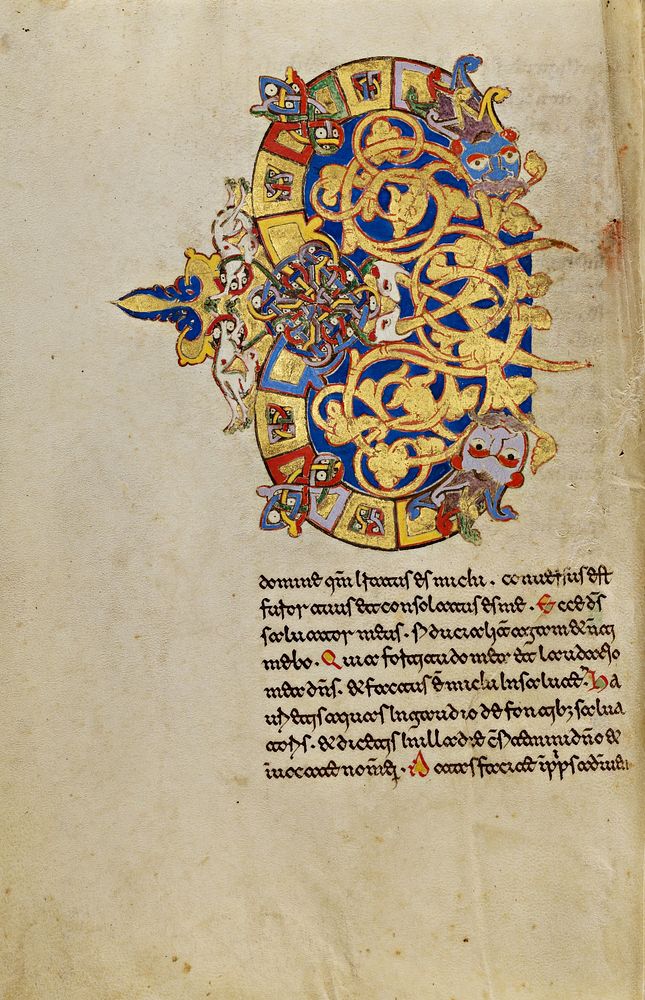 C
domine qm̄ iratus es michi. conuersus est
furor tuus et consolatus es me. Ecce ds̄
saluator meus. fiducialit̄ agam et n̄ ti
mebo. Quia fortitudo mea et laudatio
mea dn̄s. et factus ē michi in salutē. Ha
urietis aquas in gaudio de fontib; salua
toris. et dicetis in illa die c̄fitemini dn̄o et
inuocate nom̄ ei. Notas facite ī pp̄s adinuen